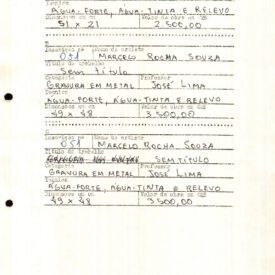 Técnica
ÁGUA-FORTE, ÁGUA-TINTA E RELEVO
Dimensões em cm Valor da obra em CR$
51 x 21 2.500,00
B
Inscrição nº Nome do artista
051 MARCELO ROCHA SOUZA
Título do trabalho
Sem título
Categoria Professor
GRAVURA EM METAL JOSÉ LIMA
Técnica
ÁGUA-FORTE, ÁGUA-TINTA E RELEVO
Dimensões em cm Valor da obra em CR$
49 x 48 3.500,00
C
Inscrição nº Nome do artista
051 MARCELO ROCHA SOUZA
Título do trabalho
SEM TÍTULO
Categoria Professor
GRAVURA EM METAL JOSÉ LIMA
Técnica
ÁGUA-FORTE, ÁGUA-TINTA E RELEVO
Dimensões em cm Valor da obra em CR$
49 x 48 3.500,00